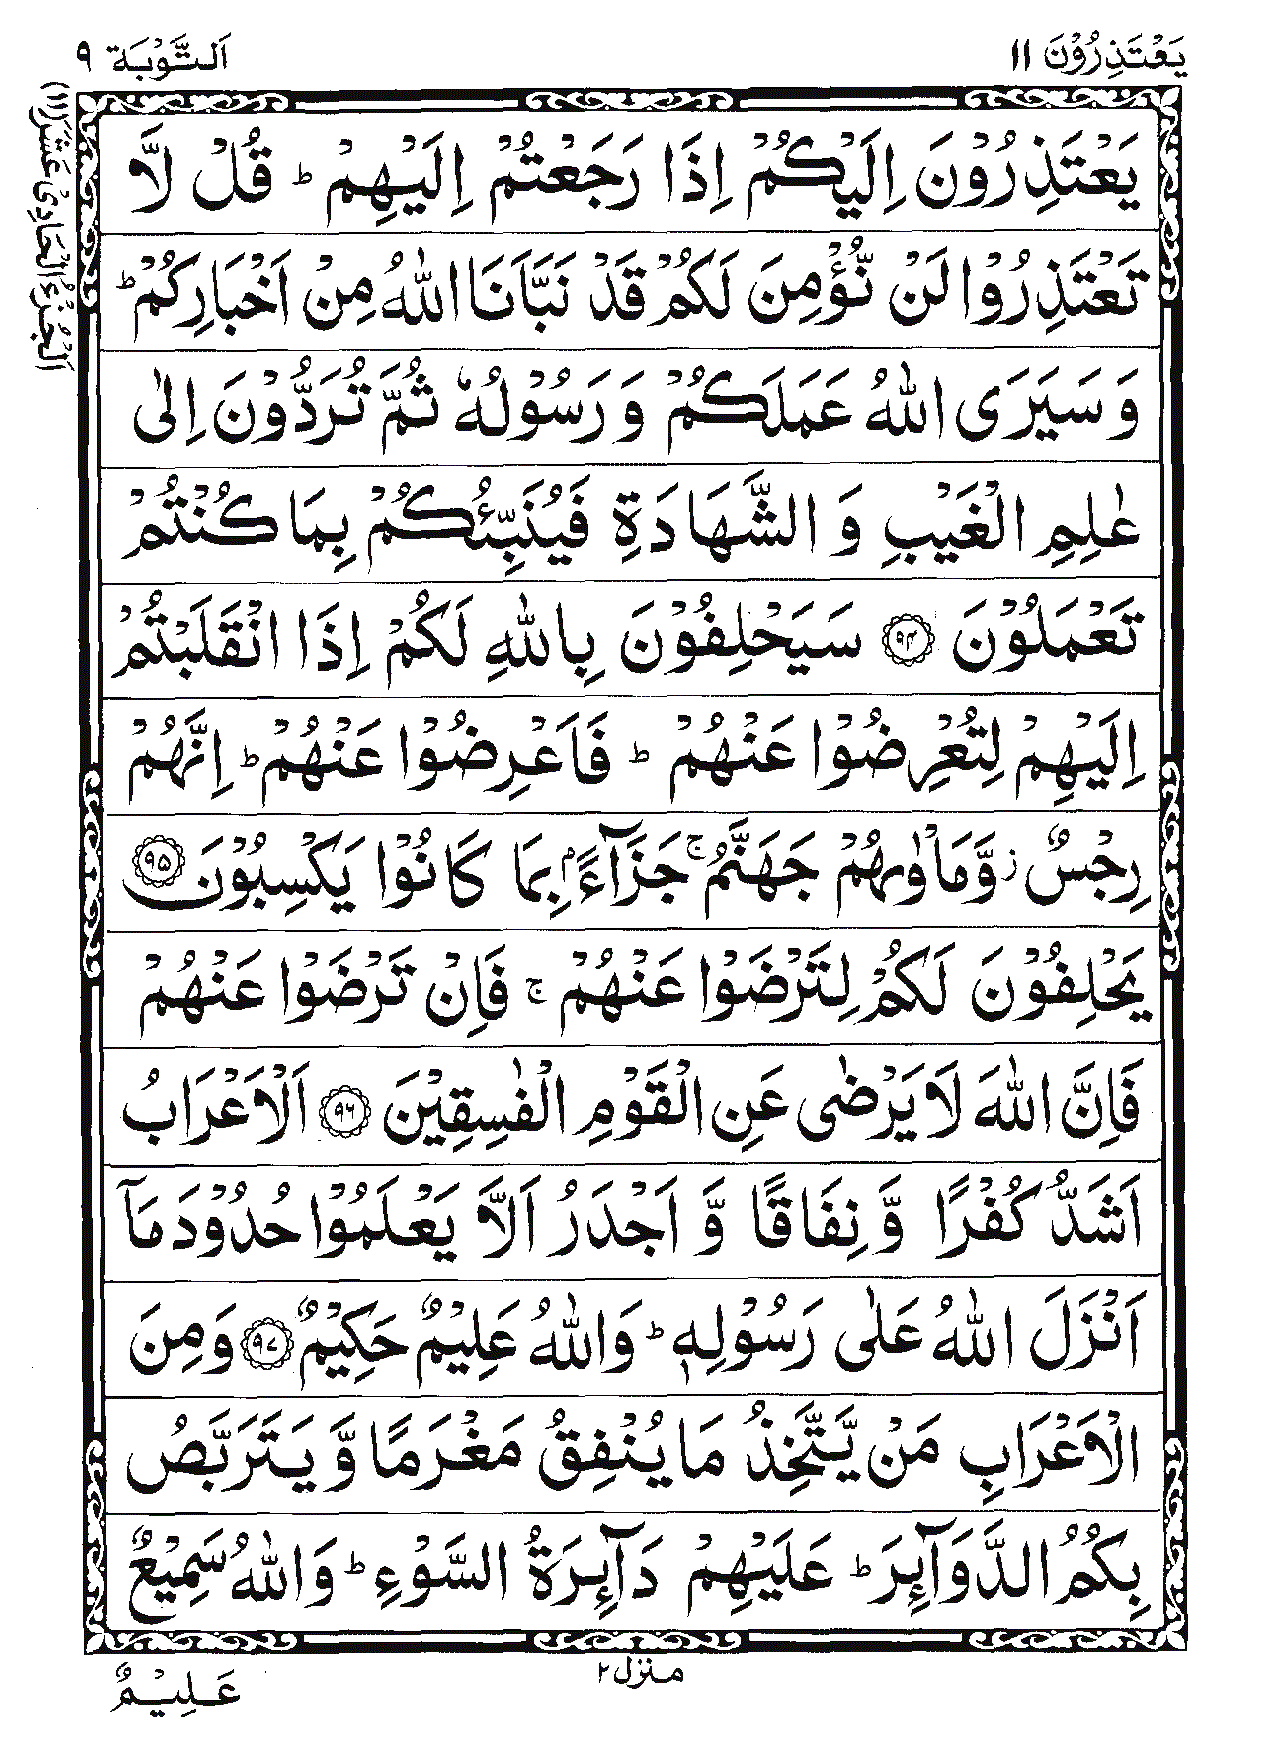 يَعْتَذِرُوْنَ ١١
اَلتَّوْبَة ٩
اَلْجُزْءُ الْحَادِیْ عَشَرَ (١١)
يَعْتَذِرُوْنَ اِلَيْكُمْ اِذَا رَجَعْتُمْ اِلَيْهِمْ ؕ قُلْ لَّا
تَعْتَذِرُوْا لَنْ نُّؤْمِنَ لَكُمْ قَدْ نَبَّاَنَا اللّٰهُ مِنْ اَخْبَارِكُمْ ؕ
وَ سَيَرَى اللّٰهُ عَمَلَكُمْ وَ رَسُوْلُهٗ ثُمَّ تُرَدُّوْنَ اِلٰى
عٰلِمِ الْغَيْبِ وَ الشَّهَادَةِ فَيُنَبِّئُكُمْ بِمَا كُنْتُمْ
تَعْمَلُوْنَ ۝۹۴ سَيَحْلِفُوْنَ بِاللّٰهِ لَكُمْ اِذَا انْقَلَبْتُمْ
اِلَيْهِمْ لِتُعْرِضُوْا عَنْهُمْ ؕ فَاَعْرِضُوْا عَنْهُمْ ؕ اِنَّهُمْ
رِجْسٌ ز وَّمَاْوٰىهُمْ جَهَنَّمُ ۚ جَزَآءًۢ بِمَا كَانُوْا يَكْسِبُوْنَ ۝۹۵
يَحْلِفُوْنَ لَكُمْ لِتَرْضَوْا عَنْهُمْ ۚ فَاِنْ تَرْضَوْا عَنْهُمْ
فَاِنَّ اللّٰهَ لَا يَرْضٰى عَنِ الْقَوْمِ الْفٰسِقِيْنَ ۝۹۶ اَلْاَعْرَابُ
اَشَدُّ كُفْرًا وَّ نِفَاقًا وَّ اَجْدَرُ اَلَّا يَعْلَمُوْا حُدُوْدَ مَآ
اَنْزَلَ اللّٰهُ عَلٰى رَسُوْلِهٖ ؕ وَاللّٰهُ عَلِيْمٌ حَكِيْمٌ ۝۹۷ وَمِنَ
الْاَعْرَابِ مَنْ يَّتَّخِذُ مَا يُنْفِقُ مَغْرَمًا وَّ يَتَرَبَّصُ
بِكُمُ الدَّوَآئِرَ ؕ عَلَيْهِمْ دَآئِرَةُ السَّوْءِ ؕ وَاللّٰهُ سَمِيْعٌ
منزل ٢
عَلِيْمٌ